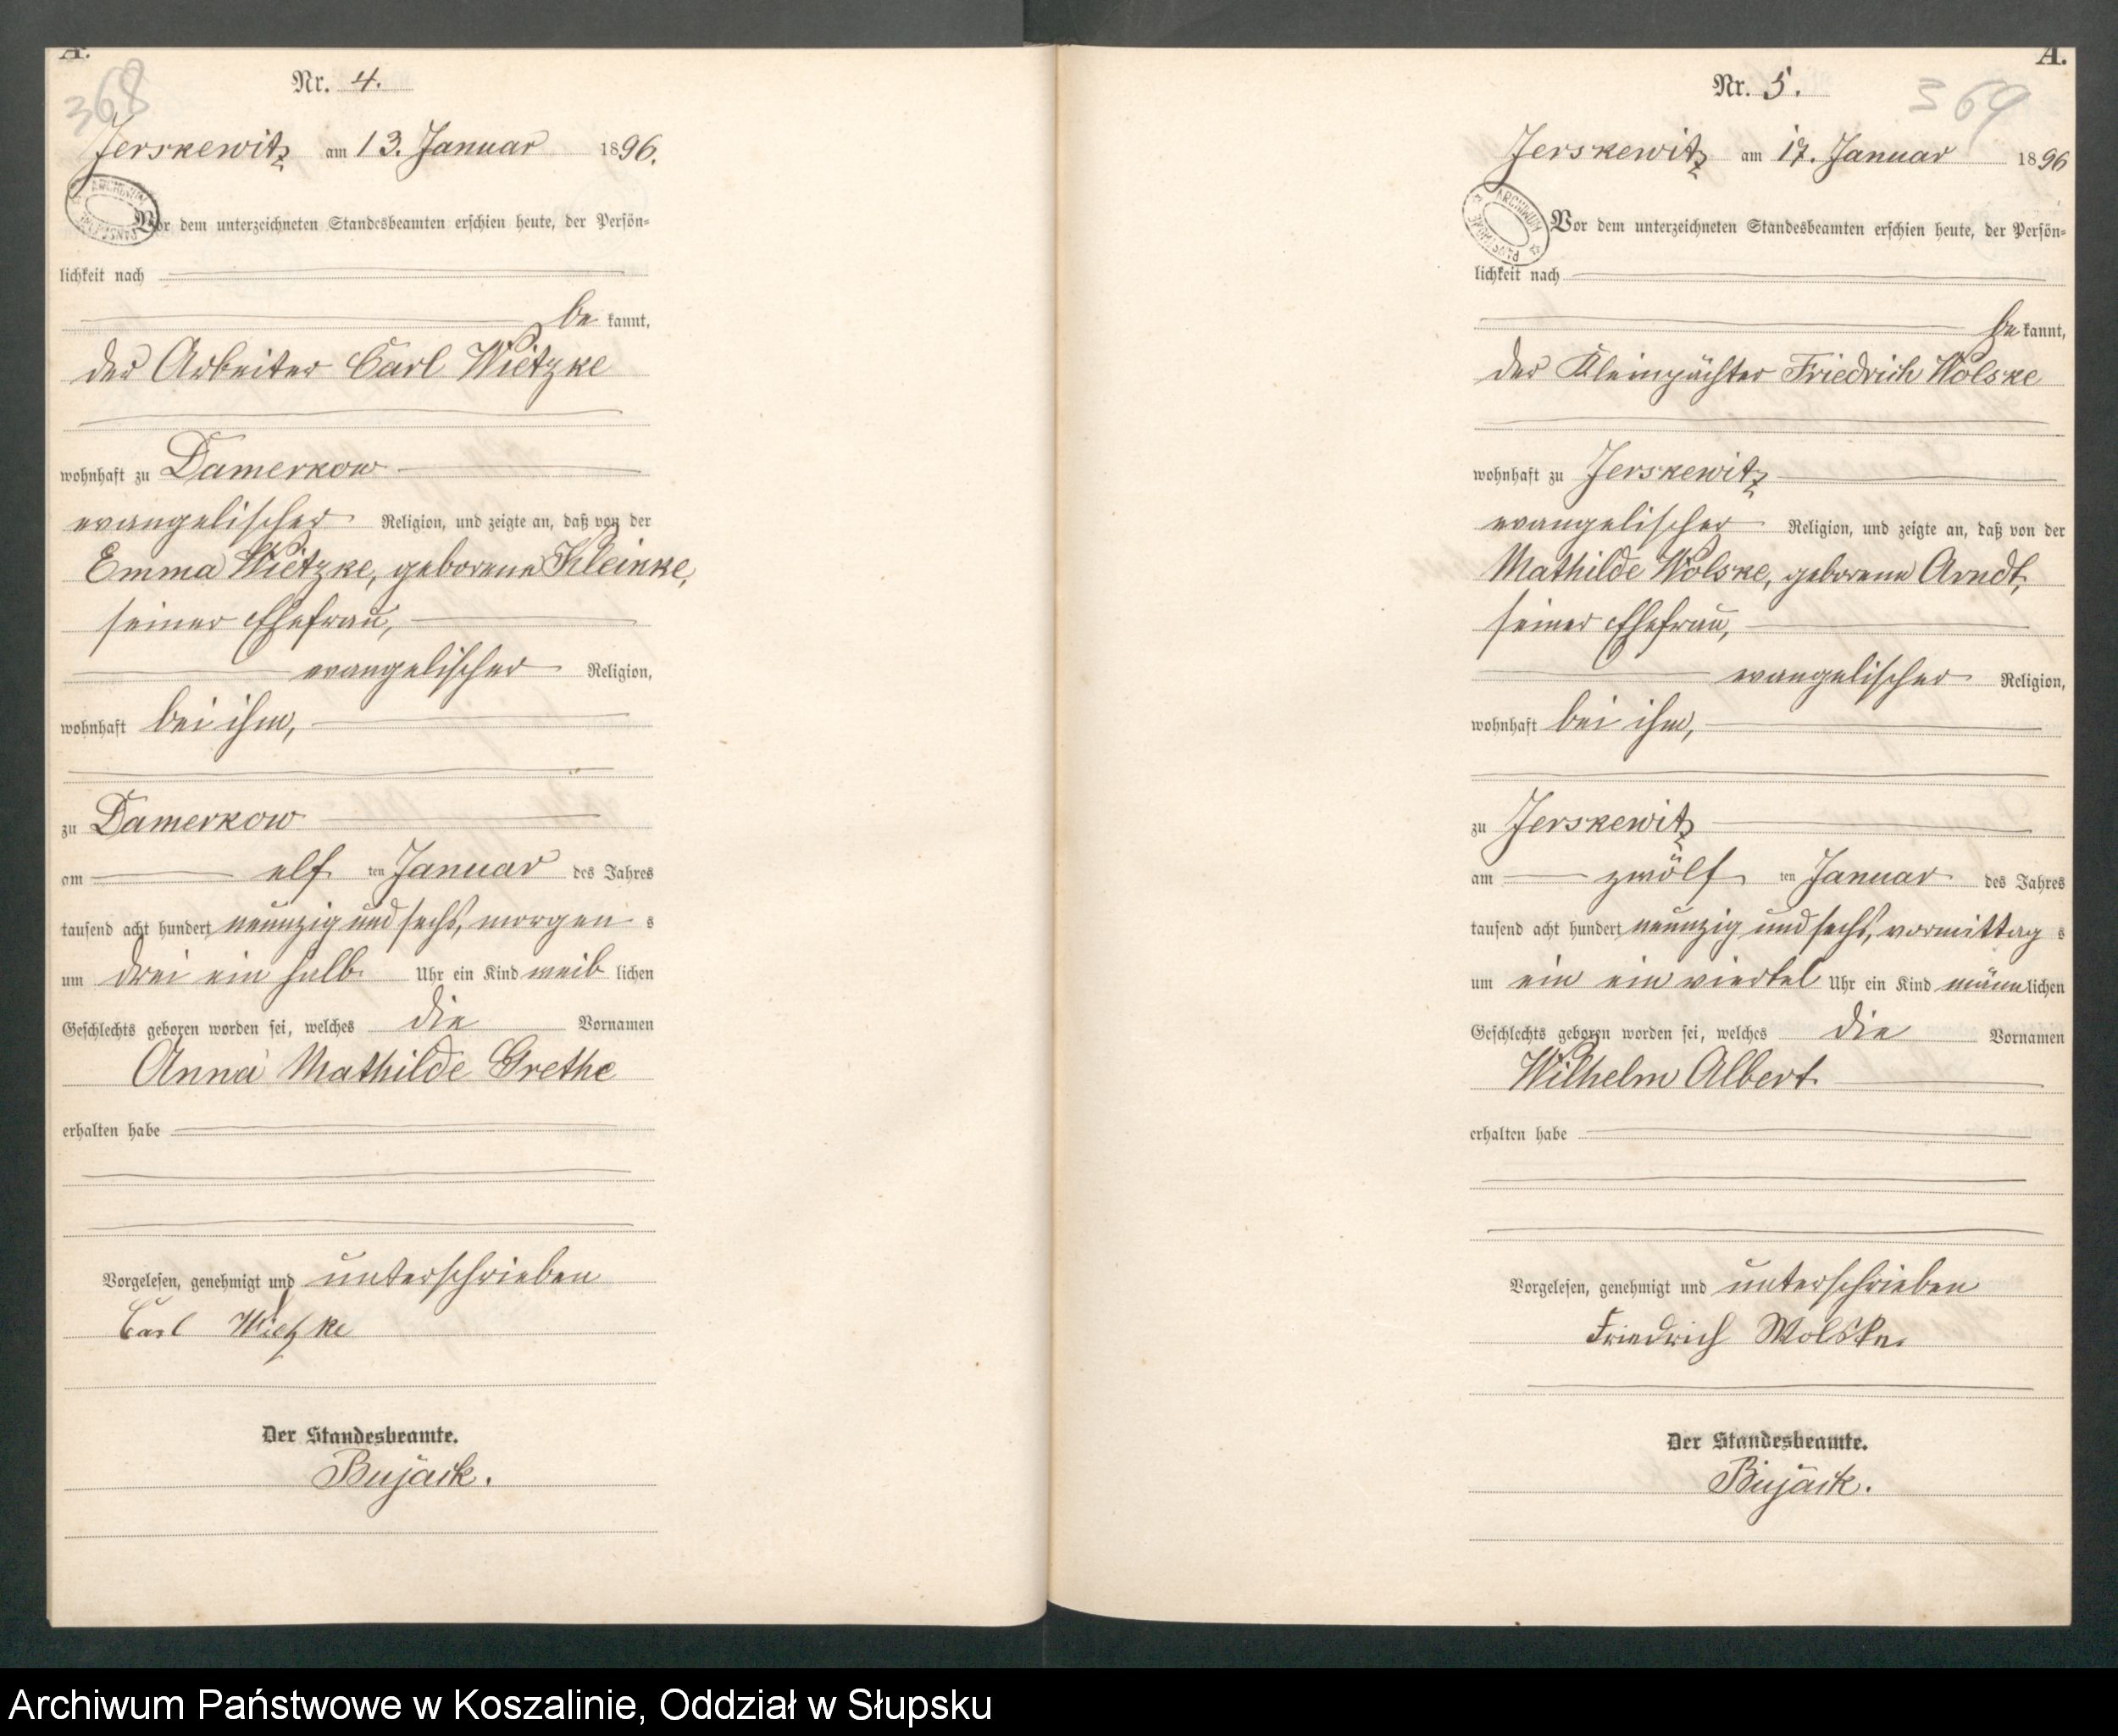 A.
368
Nr. 4.
Jerskewitz am 13. Januar 1896.
ARCHIWUM PAŃSTWOWE
Vor dem unterzeichneten Standesbeamten erschien heute, der Persön-
lichkeit nach
be kannt,
der Arbeiter Carl Wietzke
wohnhaft zu Damerkow
evangelischer Religion, und zeigte an, daß von der
Emma Wietzke, geborene Kleinke,
seiner Ehefrau,
evangelischer Religion,
wohnhaft bei ihm,
zu Damerkow
am elf ten Januar des Jahres
tausend acht hundert neunzig und sechs, morgen s
um drei ein halb Uhr ein Kind weib lichen
Geschlechts geboren worden sei, welches die Vornamen
Anna Mathilde Grethe
erhalten habe
Vorgelesen, genehmigt und unterschrieben
Carl Wietzke
Der Standesbeamte.
Bujack.
A.
369
Nr. 5.
Jerskewitz am 17. Januar 1896
ARCHIWUM PAŃSTWOWE
Vor dem unterzeichneten Standesbeamten erschien heute, der Persön-
lichkeit nach
be kannt,
der Kleinpächter Friedrich Wolske
wohnhaft zu Jerskewitz
evangelischer Religion, und zeigte an, daß von der
Mathilde Wolske, geborene Arndt,
seiner Ehefrau,
evangelischer Religion,
wohnhaft bei ihm,
zu Jerskewitz
am zwölf ten Januar des Jahres
tausend acht hundert neunzig und sechs, vormittag s
um ein ein viertel Uhr ein Kind männ lichen
Geschlechts geboren worden sei, welches die Vornamen
Wilhelm Albert
erhalten habe
Vorgelesen, genehmigt und unterschrieben
Friedrich Wolske.
Der Standesbeamte.
Bujack.
Archiwum Państwowe w Koszalinie, Oddział w Słupsku